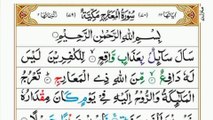 سُوْرَةُ الْمَعَارِجِ مَكِّيَّةٌ
بِسْمِ اللهِ الرَّحْمٰنِ الرَّحِيْمِ
سَاَلَ سَآئِلٌۢ بِعَذَابٍ وَّاقِعٍ لِّلْكٰفِرِيْنَ لَيْسَ
لَهٗ دَافِعٌ مِّنَ اللهِ ذِي الْمَعَارِجِ تَعْرُجُ
الْمَلٰٓئِكَةُ وَالرُّوْحُ اِلَيْهِ فِيْ يَوْمٍ كَانَ مِقْدَارُهٗ